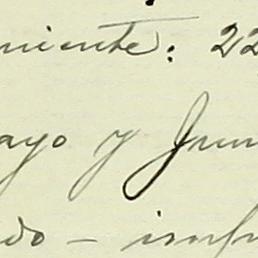 niente: 22
ayo y Jun
do — insp